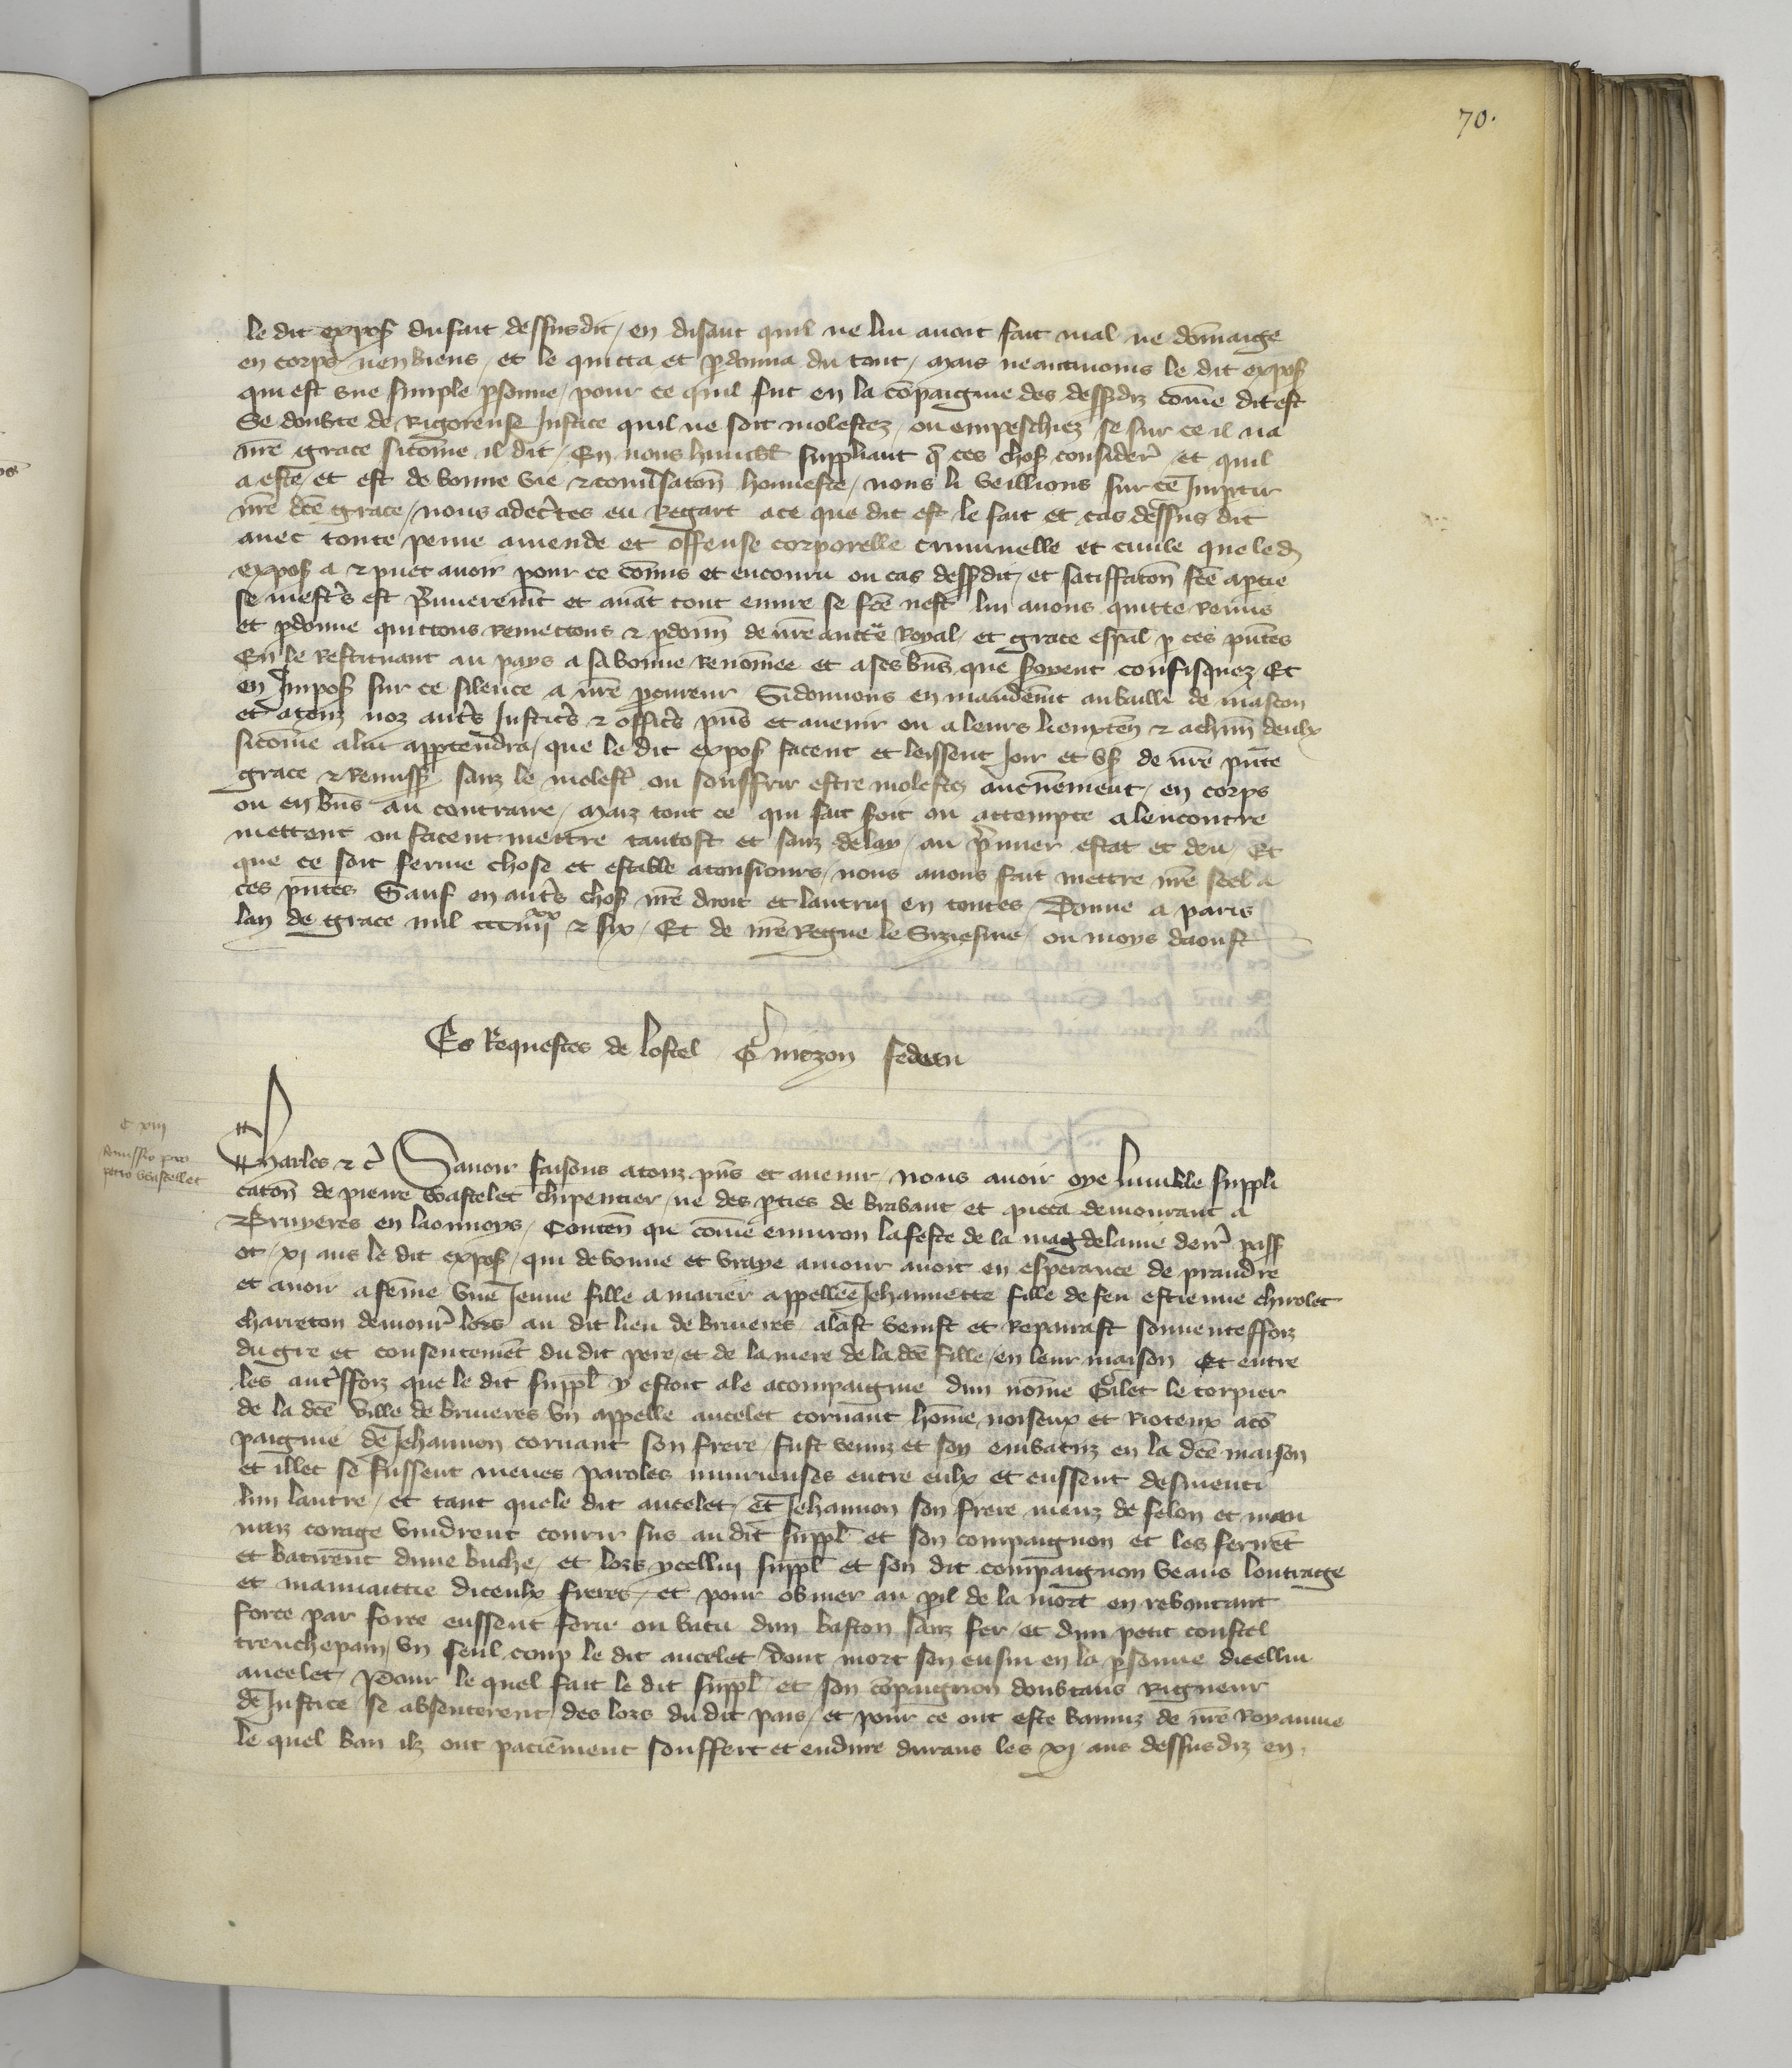 70.
le dit expos du fait dessusdit / en disant quil ne lui auoit fait mal ne dōmaige
en corps nen biens / et le quitta et pdonna du tout / mais neantmoins le dit expos
qui est vne simple psonne / pour ce quil fut en la cōpaignie des dessdiz cōme dit est
Se doubte de Rigoreuse Justice quil ne soit molestez / ou empeschiez / se sur ce il na
nrē grace sicōme il dit / En nous humblt suppliant q̄ ces chos consider̄ / et quil
a este / et est de bonne vie & conūsatoñ honneste / nous li veillions sur ce Impartir
nrē dcē grace / nous adecertes eu Regart a ce que dit est le fait et cas dessus dit
auec toute peine amende et offense corporelle criminelle et ciuile que led
expos a & puet auoir pour ce cōmis et encouru ou cas dessdit / et satiffatoñ fcē a ptie
se mestrs est p̄mierem̄t et auāt tout euure se fcē nest lui auons quitte Remis
et pdonne quittons Remettons & pdonn̄ de nrē auctē Royal / et grace espāl p ces pn̄tes
En le Restituant au pays a sa bonne Renōmee et a ses bn̄s que soyent confisquez Et
en Impos sur ce silence a nrē pcureur Si donnons en mandem̄t au bailli de mascon
et a touz noz autrs Justicrs & officrs pn̄s et auenir ou a leurs lieuxten̄ & a chūn deulx
sicōme a lui apptendra / que le dit expos facent et leissent Joir et vs de nrē pn̄te
grace & Remiss sanz le molestr ou souffrir estre molestez aucunement / en corps
ou en bn̄s au contraire / maiz tout ce qui fait soit ou attempte alencontre
mettent ou facent mettre tantost et sanz delay / au p̄mier estat et deu / Et
que ce soit ferme chose et estable atousiours / nous auons fait mettre nrē seel a
ces pn̄tes Sauf en autrs chos nrē droit et lautrui en toutes / Donne a paris
lan de grace mil ccciiijxx & six / Et de nrē Regne le Siziesme / ou moys daoust
Es Requestes de lostel G mezon
C xiij
Remissio pro
petro Wastellet
Charles & c̄ Sauoir faisons atouz pn̄s et auenir / nous auoir oye lumble suppli
catoñ de pierre Wastelet chpentier / ne des pties de brabant et pieca demourant a
Bruyeres en laonnoys / Conten̄ que cōme enuiron la feste de la magdelaine derr̄ pass
ot / xj ans le dit expos / qui de bonne et vraye amour auoit en esperance de prandre
et auoir a fēme vne Jeune fille a marier appellee Jehannette fille de feu estienne chirolet
charreton demour̄ lors au dit lieu de brueres alast venist et Repairast souuenteffoiz
du gre et consentemēt du dit pere / et de la mere de la dcē fille / en leur maison Et entre
les autrsfoiz que le dit suppl y estoit ale acompaigne dun nōme Gilet le torpier
de la dcē ville de brueres vn appelle ancelet cornant hōme noiseux et Rioteux acō
paigne de Jehannon cornant son frere / fust venuz et soy embatuz en la dcē maison
et illec se fussent meues paroles iniurieuses entre eulx et eussent desmenti
lun lautre / et tant que le dit ancelet / et Jehannon son frere meuz de felon et mau
uaiz corage vindrent courir sus au dit suppl et son compaignon et les ferirēt
et batirent dune buche / et lors ycellui suppl et son dit compaignon veans loutrage
et mauuaittie diceulx freres / et pour obuier au pil de la mort en reboutant
force par force eussent feru ou batu dun baston sanz fer / et dun petit coustel
trenchepain / vn seul coup le dit ancelet / dont mort sen ensui en la psonne dicellui
ancelet / Pour le quel fait le dit suppl et son cōpaignon doubtans Rigueur
de Justice se absenterent des lors du dit pais / et pour ce ont este banniz de nrē Royaume
le quel ban ilz ont paciēment souffert et endure durans les xj ans dessusdiz en